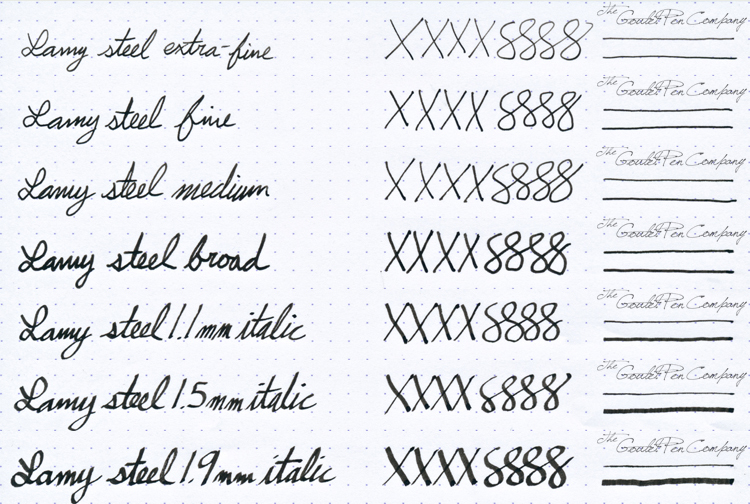 Lamy steel extra-fine XXXX 8888 The Goulet Pen Company
Lamy steel fine XXXX 8888 The Goulet Pen Company
Lamy steel medium XXXX 8888 The Goulet Pen Company
Lamy steel broad XXXX 8888 The Goulet Pen Company
Lamy steel 1.1mm italic XXXX 8888 The Goulet Pen Company
Lamy steel 1.5mm italic XXXX 8888 The Goulet Pen Company
Lamy steel 1.9mm italic XXXX 8888 The Goulet Pen Company